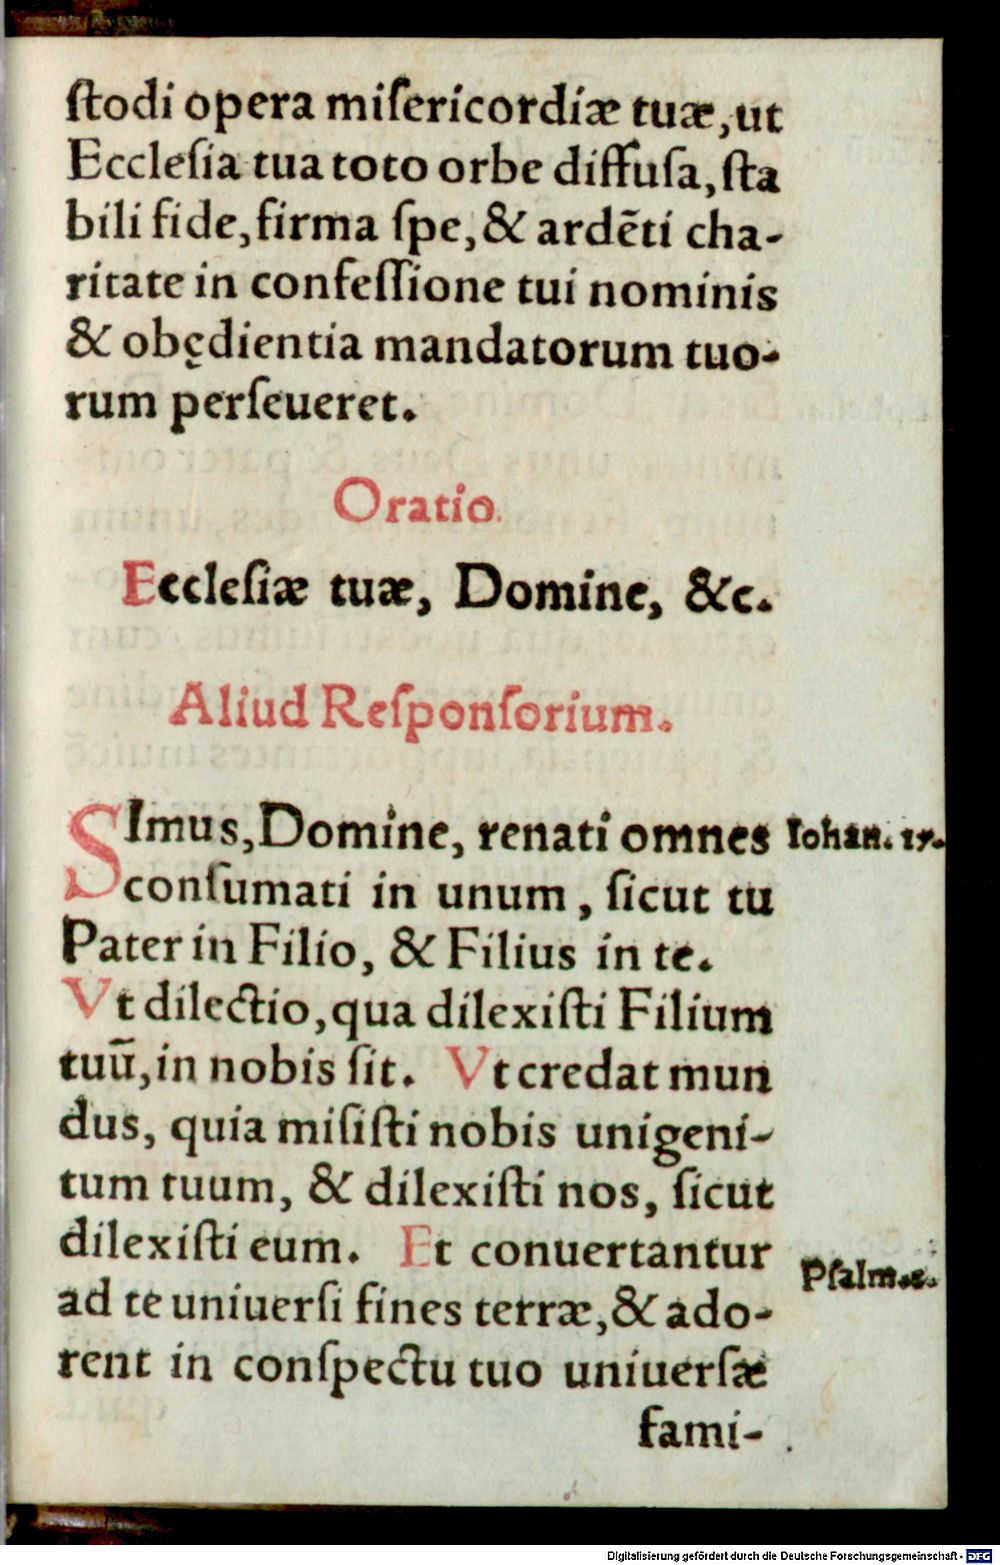 ſtodi opera miſericordiæ tuæ, ut
Eccleſia tua toto orbe diffuſa, ſta
bili fide, firma ſpe, & ardẽti cha-
ritate in confeſſione tui nominis
& obędientia mandatorum tuo-
rum perſeueret.
Oratio.
Eccleſiæ tuæ, Domine, &c.
Aliud Reſponſorium.
SImus, Domine, renati omnes Iohan. 17.
conſumati in unum, ſicut tu
Pater in Filio, & Filius in te.
Vt dilectio, qua dilexiſti Filium
tuū, in nobis ſit. Vt credat mun
dus, quia miſiſti nobis unigeni-
tum tuum, & dilexiſti nos, ſicut
dilexiſti eum. Et conuertantur
Pſalm.
ad te uniuerſi fines terræ, & ado-
rent in conſpectu tuo uniuerſæ
fami-
Digitalisierung gefördert durch die Deutsche Forschungsgemeinschaft - DFG